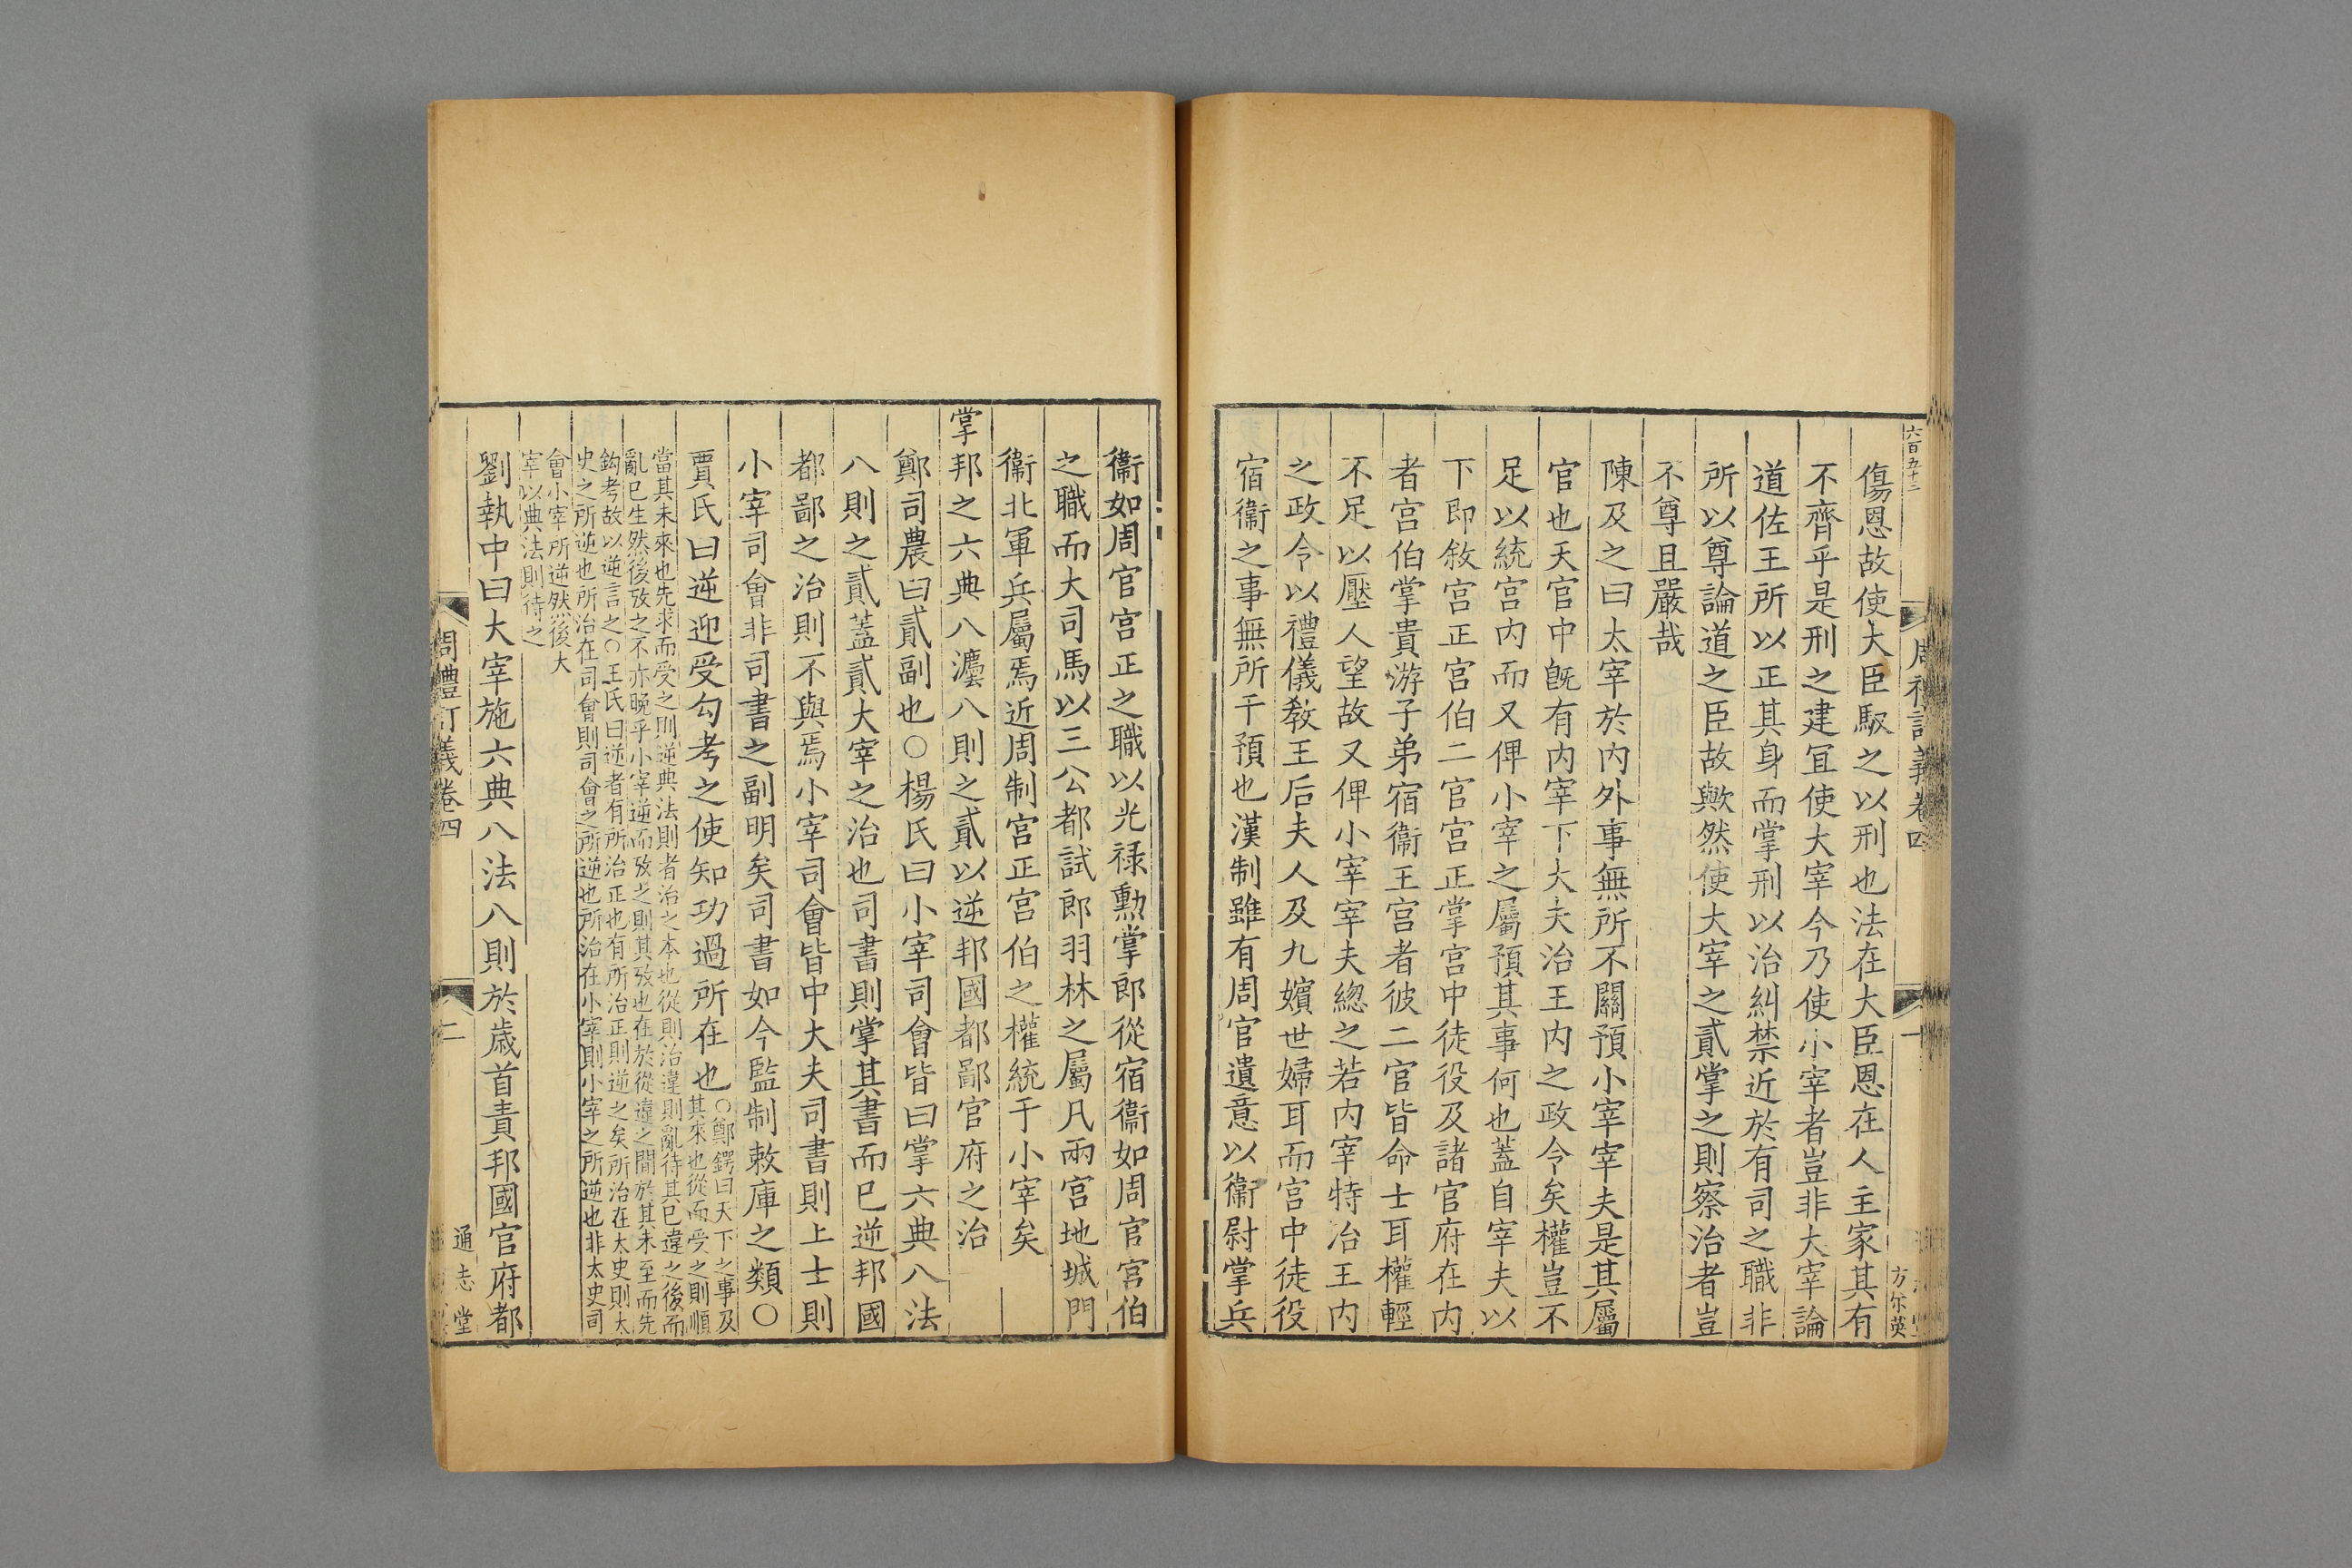 六百五十二
周禮訂義卷四
一
方尓英
傷恩故使大臣馭之以刑也法在大臣恩在人主家其有
不齊乎是刑之建宜使大宰今乃使小宰者豈非大宰論
道佐王所以正其身而掌刑以治糾禁近於有司之職非
所以尊論道之臣故歟然使大宰之貳掌之則察治者豈
不尊且嚴哉
陳及之曰太宰於内外事無所不關預小宰宰夫是其屬
官也天官中旣有内宰下大夫治王内之政令矣權豈不
足以統宫内而又俾小宰之屬預其事何也蓋自宰夫以
下即敘宫正宫伯二官宫正掌宫中徒役及諸官府在内
者宫伯掌貴游子弟宿衞王宫者彼二官皆命士耳權輕
不足以壓人望故又俾小宰宰夫緫之若内宰特治王内
之政令以禮儀敎王后夫人及九嬪世婦耳而宫中徒役
宿衞之事無所干預也漢制雖有周官遺意以衞尉掌兵
衞如周官宫正之職以光祿勳掌郎從宿衞如周官宫伯
之職而大司馬以三公都試郎羽林之屬凡兩宫地城門
衞北軍兵屬焉近周制宫正宫伯之權統于小宰矣
掌邦之六典八灋八則之貳以逆邦國都鄙官府之治
鄭司農曰貳副也○楊氏曰小宰司會皆曰掌六典八法
八則之貳蓋貳大宰之治也司書則掌其書而已逆邦國
都鄙之治則不與焉小宰司會皆中大夫司書則上士則
小宰司會非司書之副明矣司書如今監制敕庫之類○
賈氏曰逆迎受勾考之使知功過所在也
○鄭鍔曰天下之事及
其來也從而受之則順
當其未來也先求而受之則逆典法則者治之本也從則治違則亂待其已違之後而
亂已生然後攷之不亦晚乎小宰逆而攷之則其攷也在於從違之間於其未至而先
鈎考故以逆言之○王氏曰逆者有所治正也有所治正則逆之矣所治在太史則大
史之所逆也所治在司會則司會之所逆也所治在小宰則小宰之所逆也非太史司
會小宰所逆然後大
宰以典法則待之
劉執中曰大宰施六典八法八則於歳首責邦國官府都
周禮訂義卷四
二
通志堂